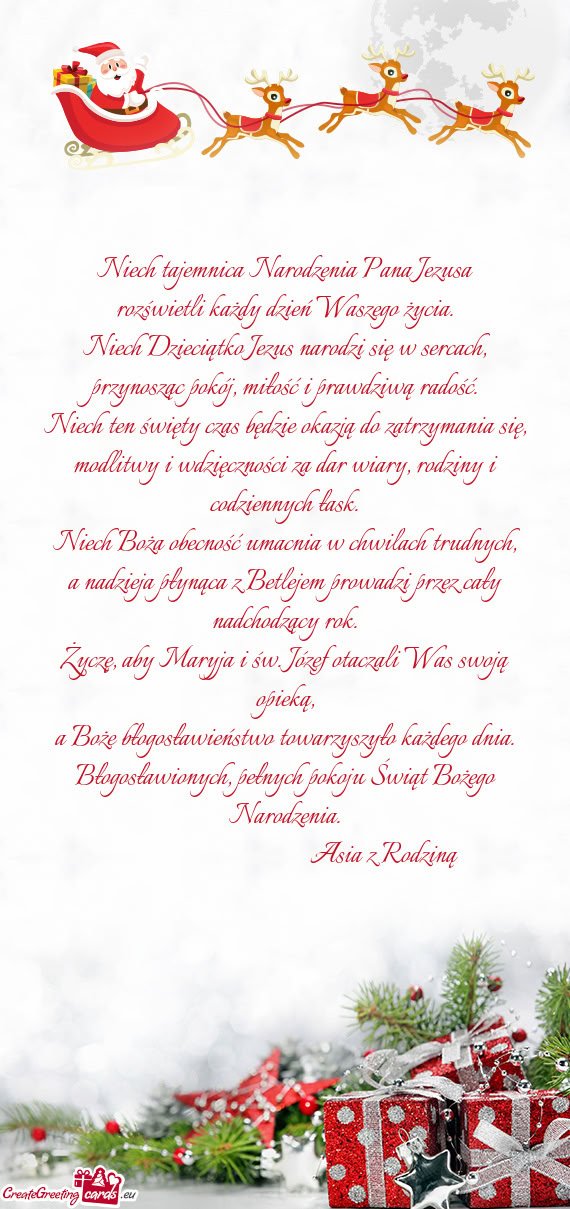 Niech tajemnica Narodzenia Pana Jezusa
rozświetli każdy dzień Waszego życia.
Niech Dzieciątko Jezus narodzi się w sercach,
przynosząc pokój, miłość i prawdziwą radość.
Niech ten święty czas będzie okazją do zatrzymania się,
modlitwy i wdzięczności za dar wiary, rodziny i
codziennych łask.
Niech Boża obecność umacnia w chwilach trudnych,
a nadzieja płynąca z Betlejem prowadzi przez cały
nadchodzący rok.
Życzę, aby Maryja i św. Józef otaczali Was swoją
opieką,
a Boże błogosławieństwo towarzyszyło każdego dnia.
Błogosławionych, pełnych pokoju Świąt Bożego
Narodzenia.
Asia z Rodziną
CreateGreeting cards .eu